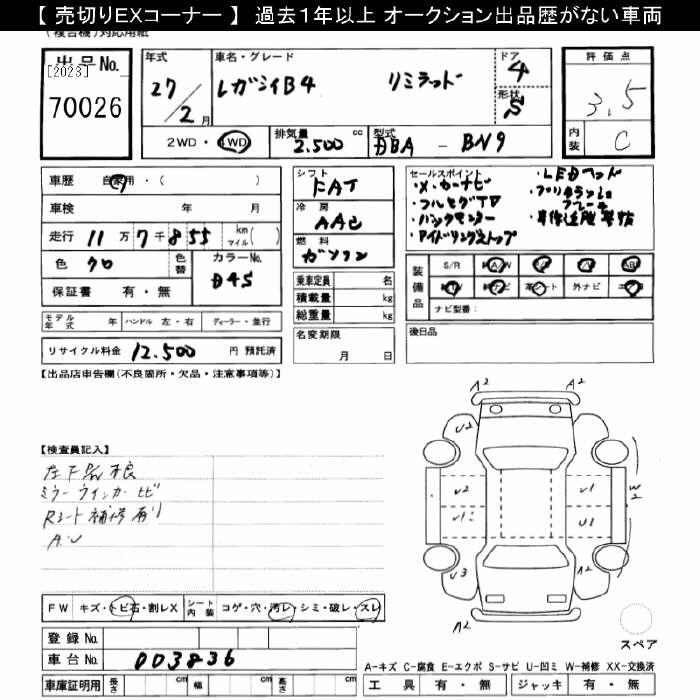 【 売切りEXコーナー 】 過去１年以上 オークション出品歴がない車両
(複合機)対応用紙
出品No.
[2023]
70026
年式
27/2月
車名・グレード
レガシイB4 リミテッド
ドア
4
形状
S
評価点
3.5
内装
C
2WD・4WD
排気量
2.500 cc
型式
DBA - BN9
車歴 自家用・( )
車検 年 月
走行 11万7千855 km マイル( )
色 クロ
色替
カラーNo.
D4S
保証書 有・無
モデル年式 年
ハンドル 左・右
ディーラー・並行
リサイクル料金 12.500 円 預託済
シフト
FAT
冷房
AAC
燃料
ガソリン
乗車定員 名
積載量 kg
総重量 kg
名変期限
月 日
セールスポイント
・バックモニター
・アイドリングストップ
・LEDヘッド
装備品
S/R
A/W
AB
革シート
外ナビ
ナビ型番：
後日品
【出品店申告欄(不良箇所・欠品・注意事項等)】
【検査員記入】
ミラーウインカーヒビ
Rシート補修有り
A.U
A2
A2
U2
U2
U1
U1
U1
W2
U3
A2
A2
FW キズ・トビ石・割レX
シート内装 コゲ・穴・汚レ・シミ・破レ・スレ
登録No.
車台No. 003836
車庫証明用 長さ cm 幅 cm 高さ cm
スペア
A-キズ C-腐食 E-エクボ S-サビ U-凹ミ W-補修 XX-交換済
工具 有・無 ジャッキ 有・無